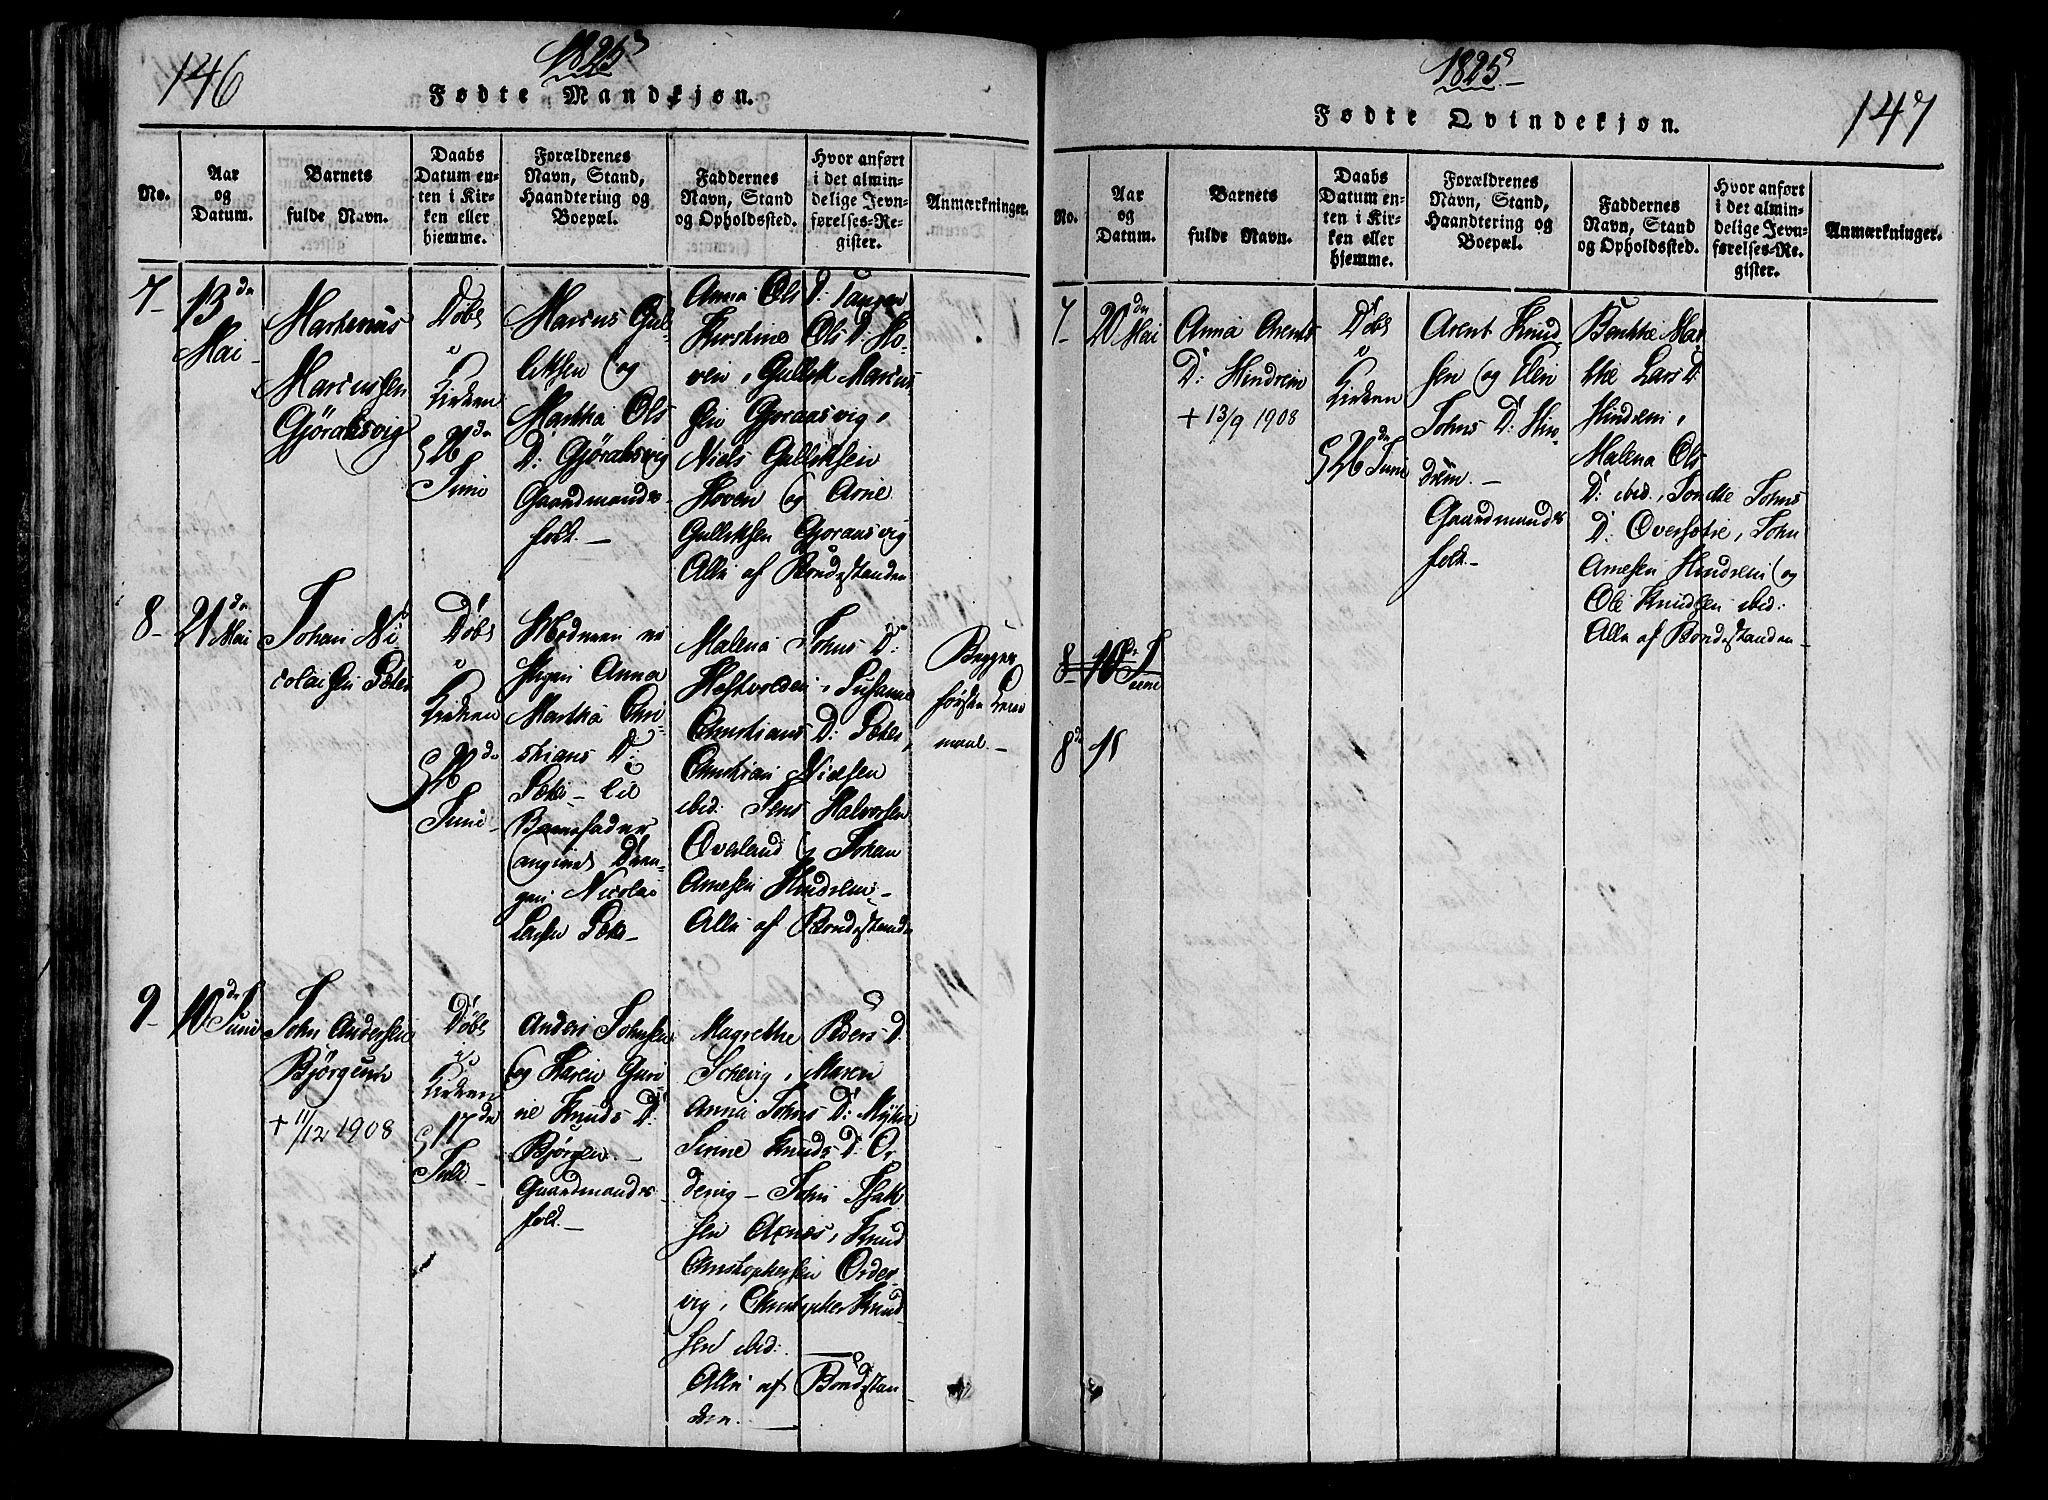 146
1825
Fødte Mandkjøn.
No.
Aar
og
Datum.
Barnets
fulde Navn.
Daabs
Datum en-
ten i Kir-
ken eller
hjemme.
Forældrenes
Navn, Stand,
Haandtering og
Boepæl.
Faddernes
Navn, Stand
og Opholdssted.
Hvor anført
i det almin-
delige Jevn-
førelses-Re-
gister.
Anmærkninger.
7
13de
Mai
Marcussen
Døbt
i
Kirken
26de
Juni
Marcus Gul-
liksen og
Martha Ols
D:
Gaardmands-
folk.
Anna Ols D:
Kirstine Ols D: Ho-
ven, Gullik Marcus
sen
Niels Gulliksen
Hoven og Arne
Gulliksen
Alle af Bondestanden
8
21de Mai
Johan Ni
colaisen
Døbt
i
Kirken
Juni
Anna
Martha Chri-
stians D:
Barnefader
angivet Dren-
gen Nicolai
Malena Johns D:
Christians D:
Christian Nielsen
ibid: Jens Halvorsen
Overland og Johan
Arnesen Hindrem
Alle af Bondestanden
Begges
første Leier
maal.
9
10de Juni
John Andersen
+ 11/12 1908
Døbt
i
Kirken
17de
Juli
Anders Johnsen
og Karen Guri
ne Knuds D:
Gaardmands
folk.
Magrethe Peders D:
Maren
Anna Johns D:
Sirine Knuds D: Or
John Isak
sen Axnes, Knud
Christophersen Order-
vig, Christopher Knud
sen ibid:
Alle af Bondestan-
den.
1825
Fødte Qvindekjøn.
147
No.
Aar
og
Datum.
Barnets
fulde Navn.
Daabs
Datum en-
ten i Kir-
ken eller
hjemme.
Forældrenes
Navn, Stand,
Haandtering og
Boepæl.
Faddernes
Navn, Stand
og Opholdssted.
Hvor anført
i det almin-
delige Jevn-
førelses-Re-
gister.
Anmærkninger.
7
20de Mai
Anna Arents
D: Hindrem
+ 13/9 1908
Døbt
i
Kirken
26de Juni
Arent Knud
sen og Elen
Johns D: Hin-
drem.
Gaardmands
folk.
Lars D:
Hindrem,
Malena Ols
D: ibid, Johns
D: John
Arnesen Hindrem og
Ole Knudsen ibid:
Alle af Bondestanden
8
10de Juni
8de